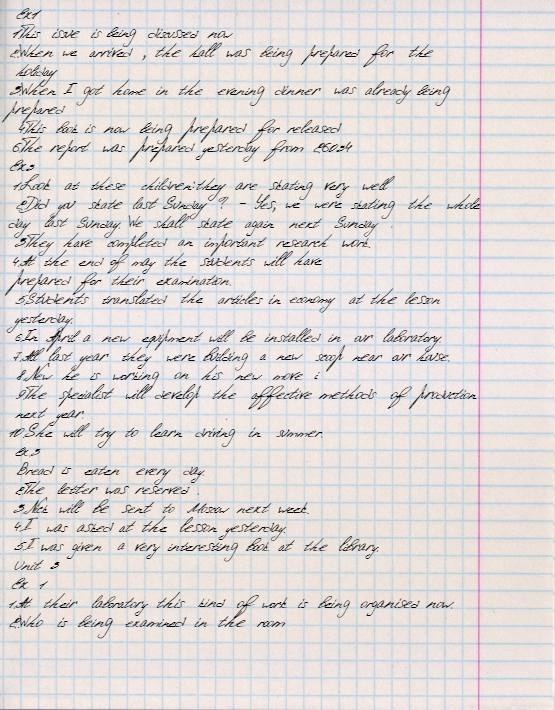 Ex1
1This issue is being discussed now
2When we arrived , the hall was being prepared for the
holiday
3When I got home in the evening dinner was already being
prepared
4This book is now being prepared for released
6The report was prepared yesterday from
Ex2
1.Look at these children:they are skating very well
2Did you skate last Sunday ? - Yes, we were skating the whole
day last Sunday. We shall skate again next Sunday.
3.They have completed an important research work.
4.At the end of may the students will have
prepared for their examination.
5.Students translated the articles in economy at the lesson
yesterday.
6.In April a new equipment will be installed in our laboratory.
7.All last year they were building a new scoop near our house.
8.Now he is working on his new move :
9.The specialist will develop the affective methods of production
next year.
10.She will try to learn driving in summer.
Ex.3
Bread is eaten every day.
2The letter was reserved
3.Nick will be sent to Moscow next week.
4.I was asked at the lesson yesterday.
5.I was given a very interesting book at the library.
Unit 3
Ex 1
1.At their laboratory this kind of work is being organised now.
2Who is being examined in the room